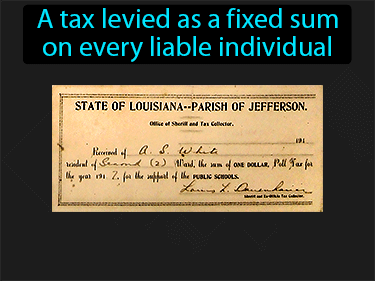 A tax levied as a fixed sum
on every liable individual
STATE OF LOUISIANA--PARISH OF JEFFERSON.
Office of Sheriff and Tax Collector.
191
Received of A. S. White
resident of Second (2) Ward, the sum of ONE DOLLAR, Poll Tax for
the year 191 2. for the support of the PUBLIC SCHOOLS.
Louis L.
Sheriff and Ex-Officio Tax Collector.